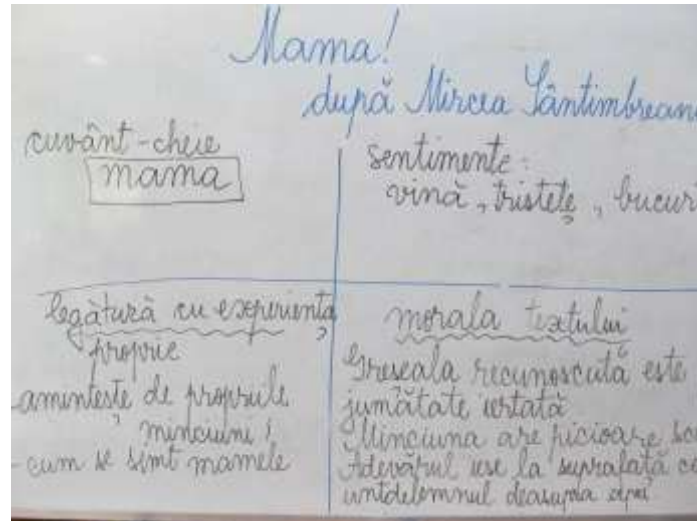 Mama!
după Mircea Sântimbrean
cuvânt-cheie
mama
sentimente:
vină, tristețe, bucur
legătură cu experiența
proprie
amintește de propriile
minciuni!
- cum se simt mamele
morala textului
Greșeala recunoscută este
jumătate iertată
Minciuna are picioare sc
Adevărul iese la suprafață ca
untdelemnul deasupra apei